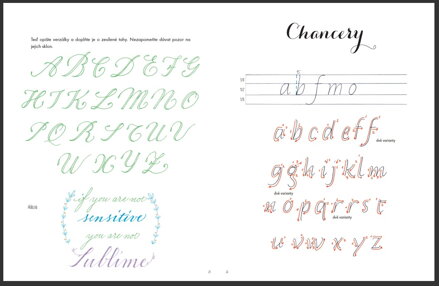 Teď opište verzálky a doplňte je o zesílené tahy. Nezapomeňte dávat pozor na
jejich sklon.
A B C D E F G
H I J K L M N O
P Q R S T U V
W X Y Z
if you are not
sensitive
you are not
Sublime
Chancery
a b f m o
a b c d e f f
dvě varianty
g g h i j k l m
dvě varianty
n o p q r r s t
dvě varianty
u v w x y z